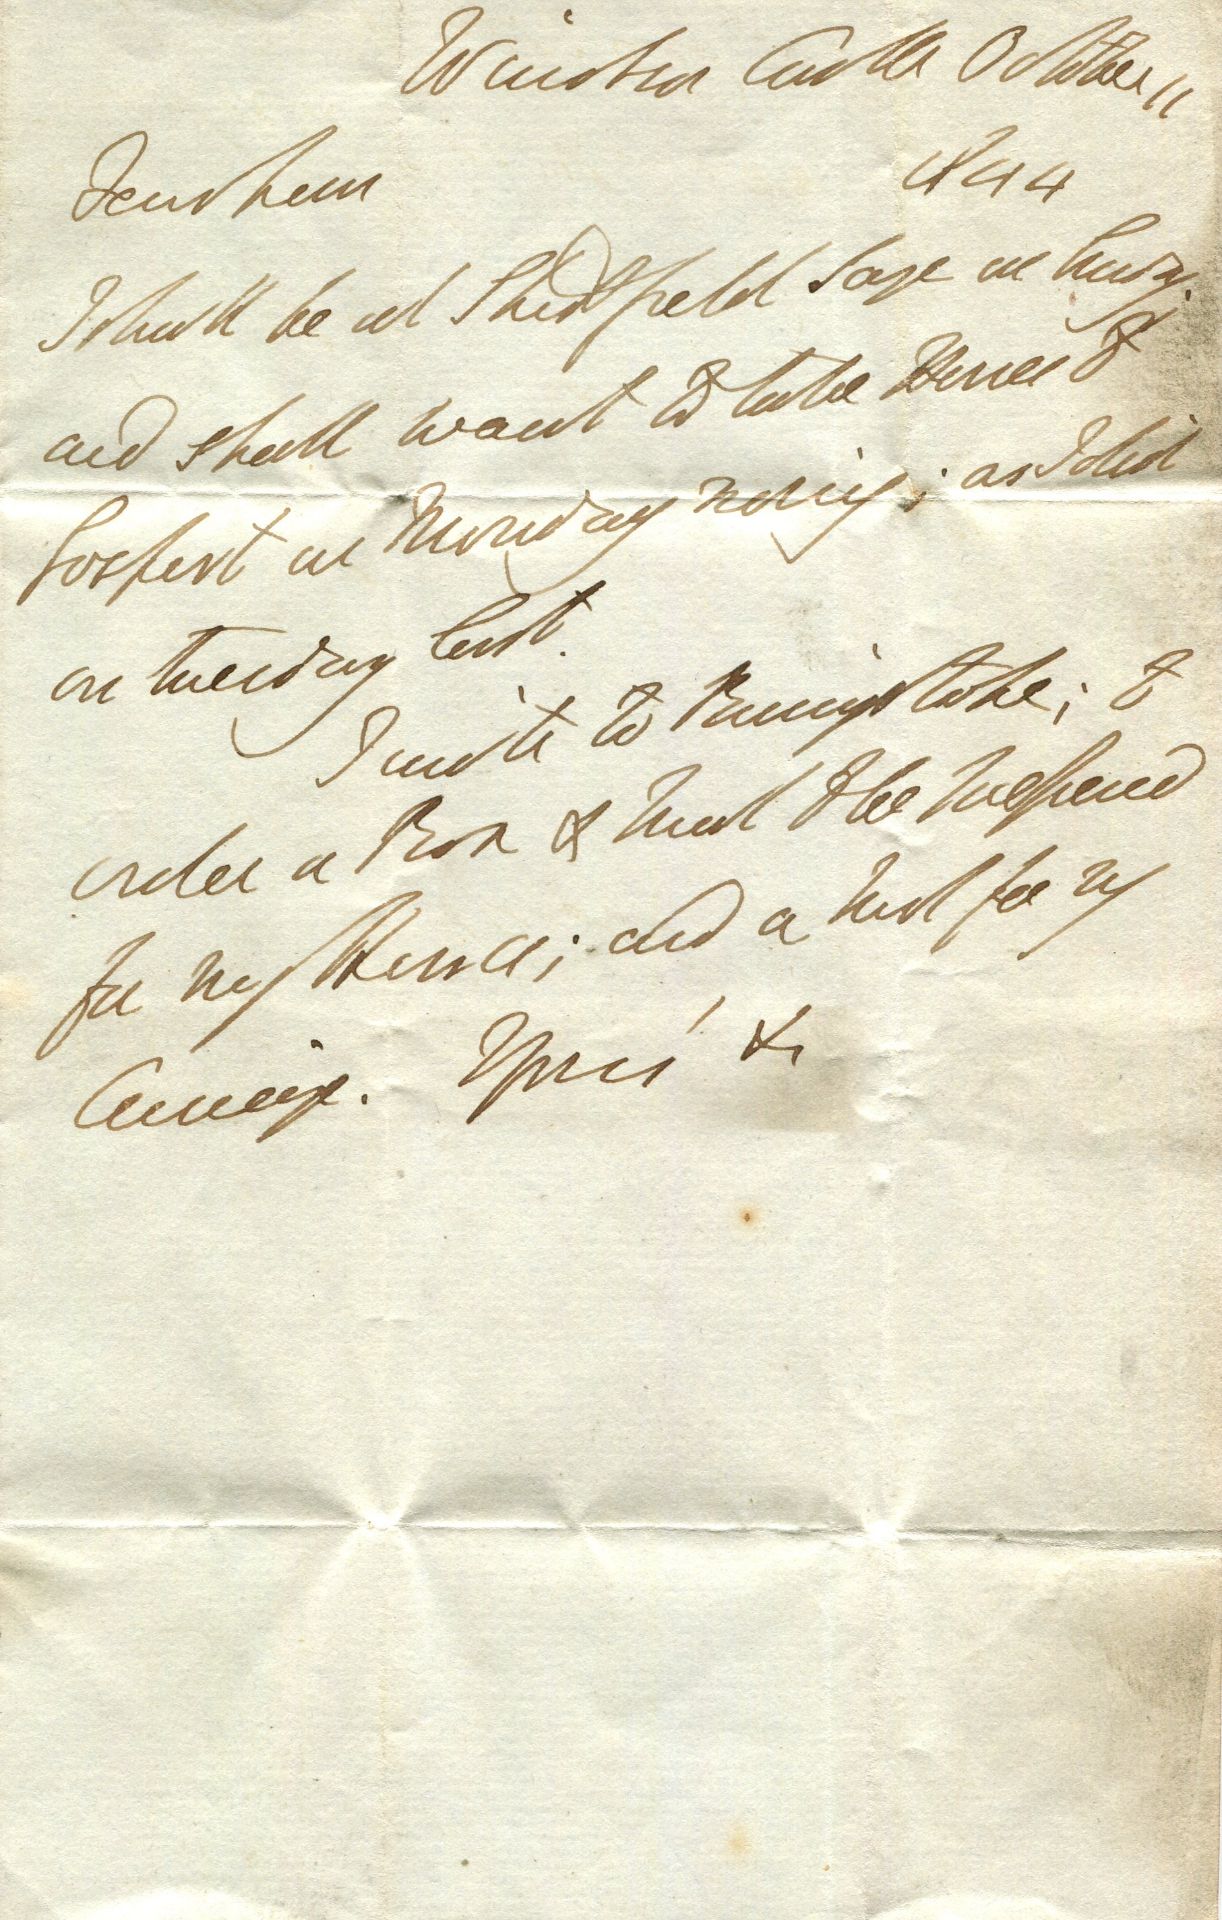 Windsor Castle October 11
1844
I shall be at Strathfield Saye on Sunday.
and shall want to take Horses to
Gosport on Monday morning; as I did
on Tuesday last.
I write to Basingstoke; to
order a Box & to be prepared
for my Horses; and a Truck for my
Carriage. Yours &c